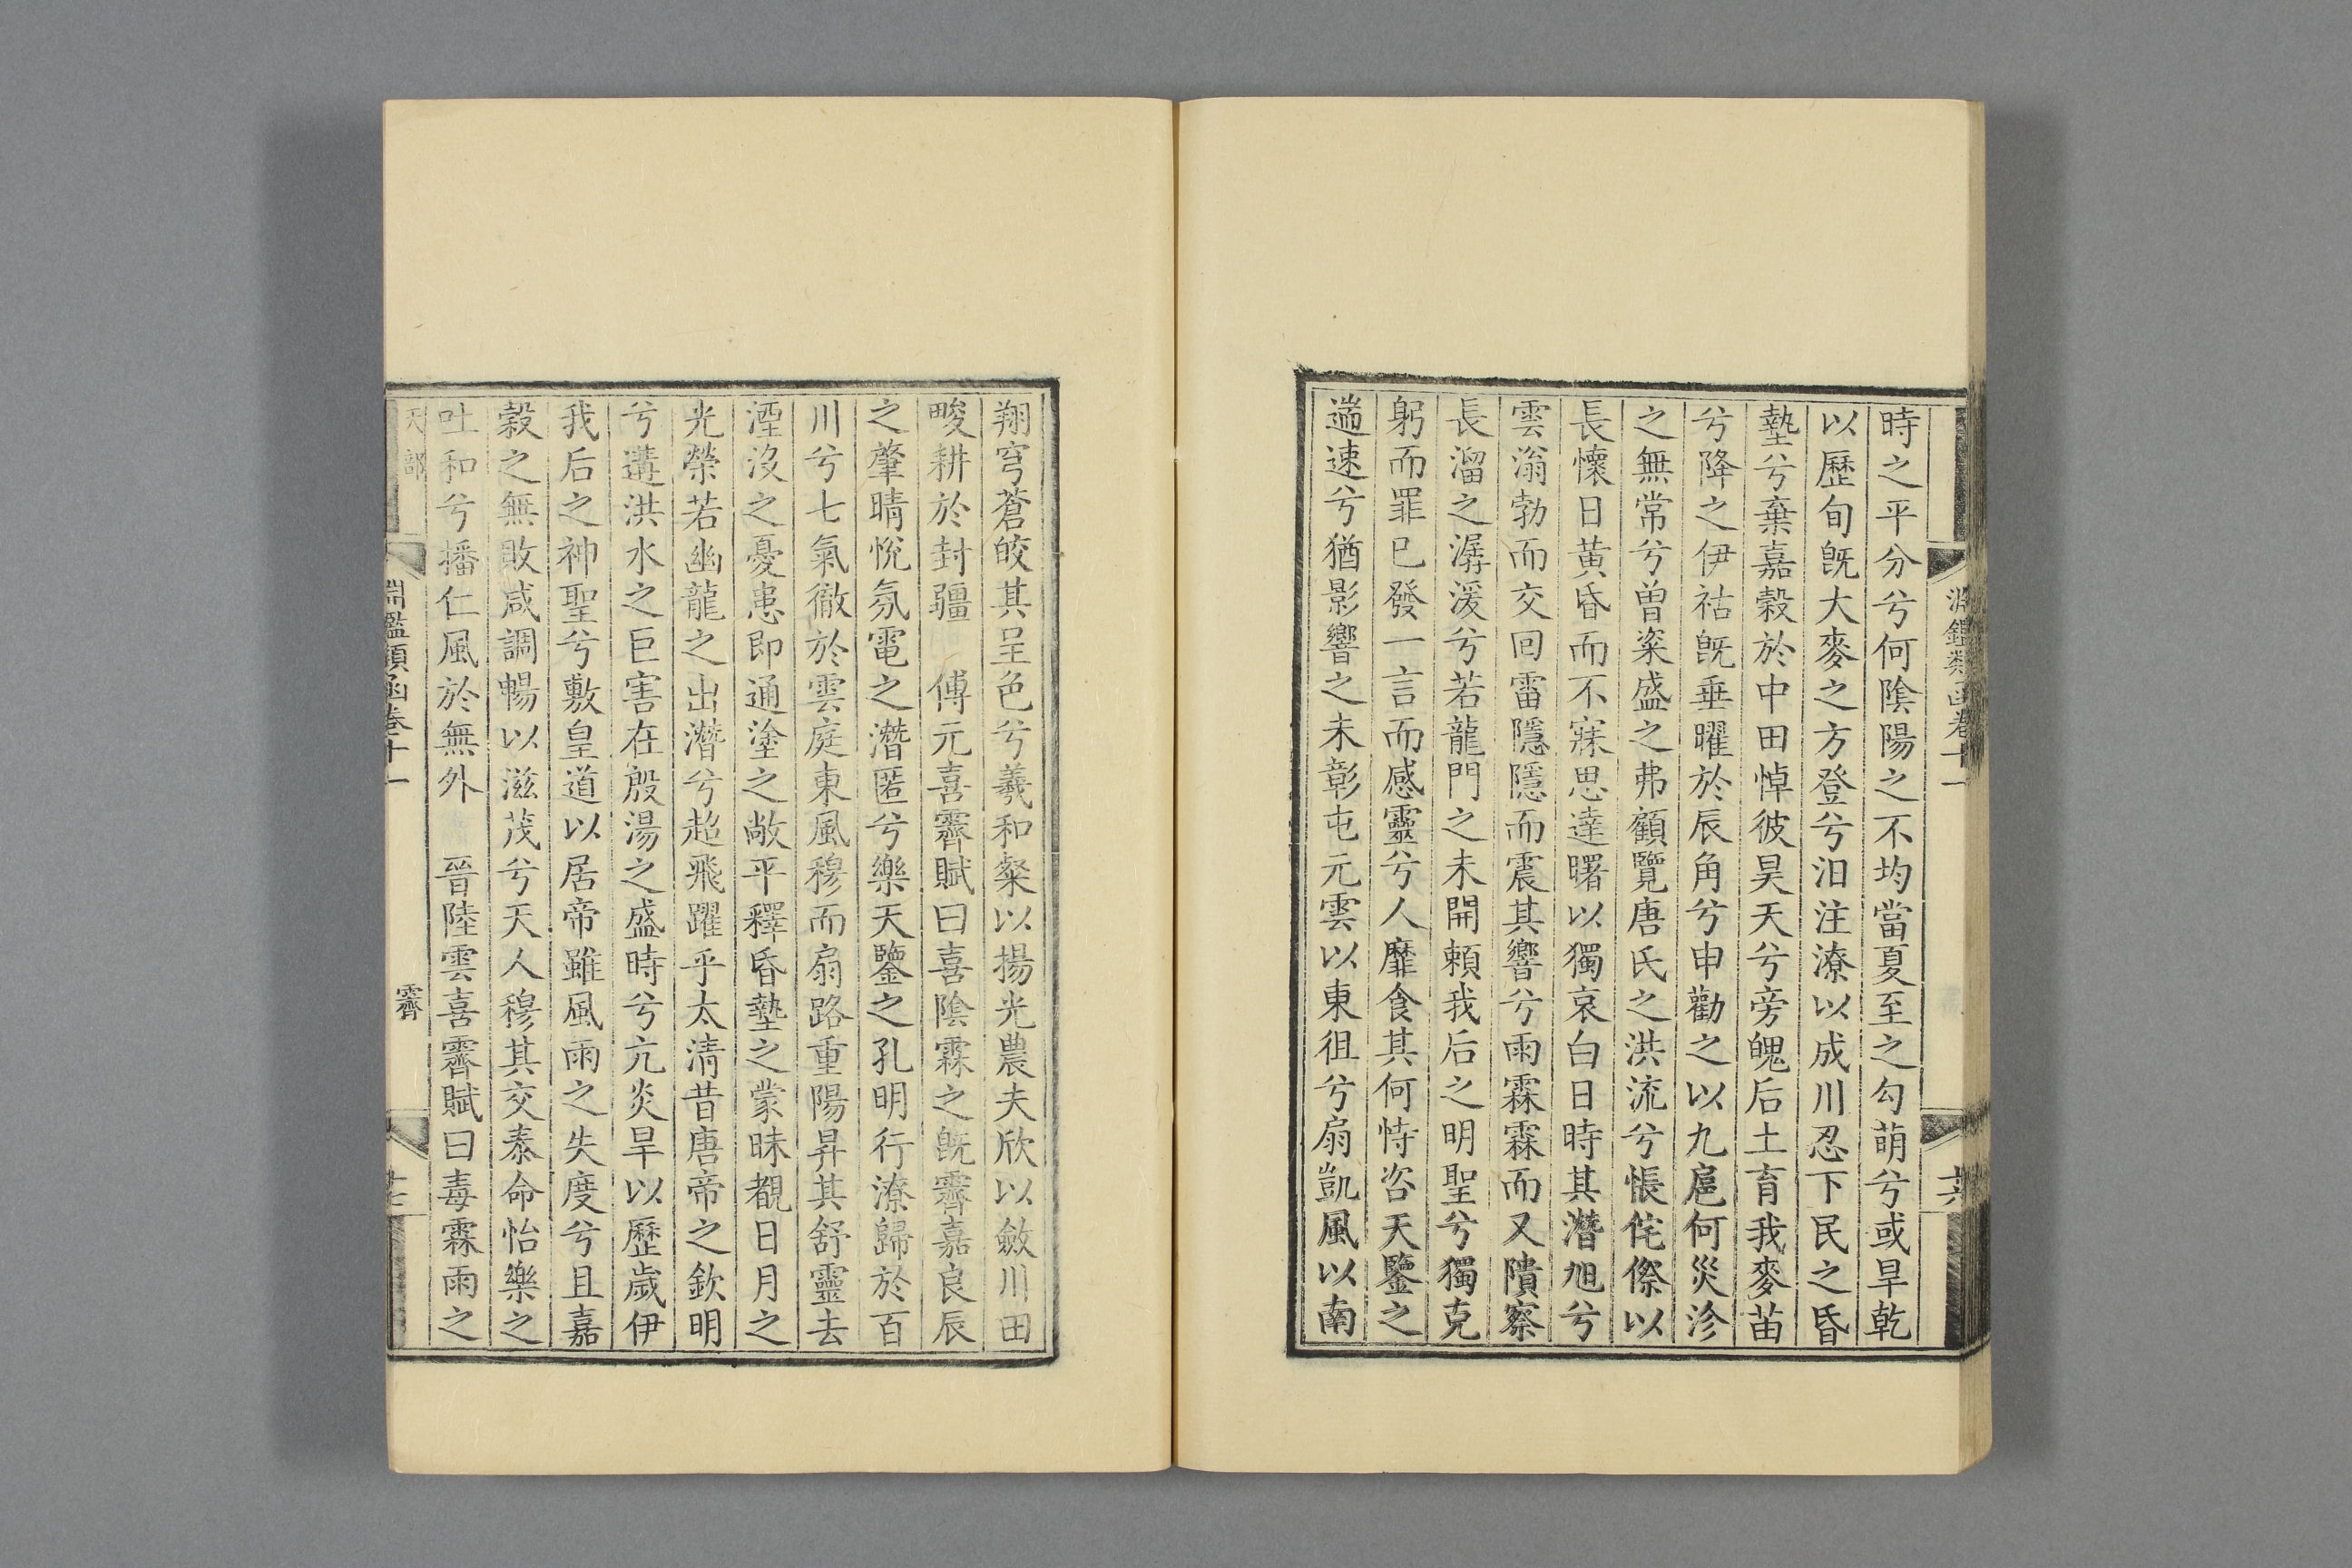 淵鑑類函卷十一
十六
時之平分兮何陰陽之不均當夏至之勾萌兮或旱乾
以歷旬旣大麥之方登兮汩注潦以成川忍下民之昏
墊兮棄嘉穀於中田悼彼昊天兮旁魄后土育我麥苗
兮降之伊祜旣垂曜於辰角兮申勸之以九扈何災沴
之無常兮曾粢盛之弗顧覽唐氏之洪流兮悵侘傺以
長懷日黃昏而不寐思達曙以獨哀白日時其潛旭兮
雲滃勃而交回雷隱隱而震其響兮雨霖霖而又隤察
長溜之潺湲兮若龍門之未開賴我后之明聖兮獨克
躬而罪已發一言而感靈兮人靡食其何恃咨天鑒之
遄速兮猶影響之未彰屯元雲以東徂兮扇凱風以南
翔穹蒼皎其呈色兮羲和粲以揚光農夫欣以斂川田
畯耕於封疆 傅元喜霽賦曰喜陰霖之旣霽嘉良辰
之肇晴悅氛電之潛匿兮樂天鑒之孔明行潦歸於百
川兮七氣徹於雲庭東風穆而扇路重陽昇其舒靈去
湮沒之憂患即通塗之敞平釋昏墊之蒙昧覩日月之
光榮若幽龍之出潛兮超飛躍乎太清昔唐帝之欽明
兮遘洪水之巨害在殷湯之盛時兮亢炎旱以歷歲伊
我后之神聖兮敷皇道以居帝雖風雨之失度兮且嘉
穀之無敗咸調暢以滋茂兮天人穆其交泰命怡樂之
吐和兮播仁風於無外 晉陸雲喜霽賦曰毒霖雨之
天部
淵鑑類函卷十一
霽